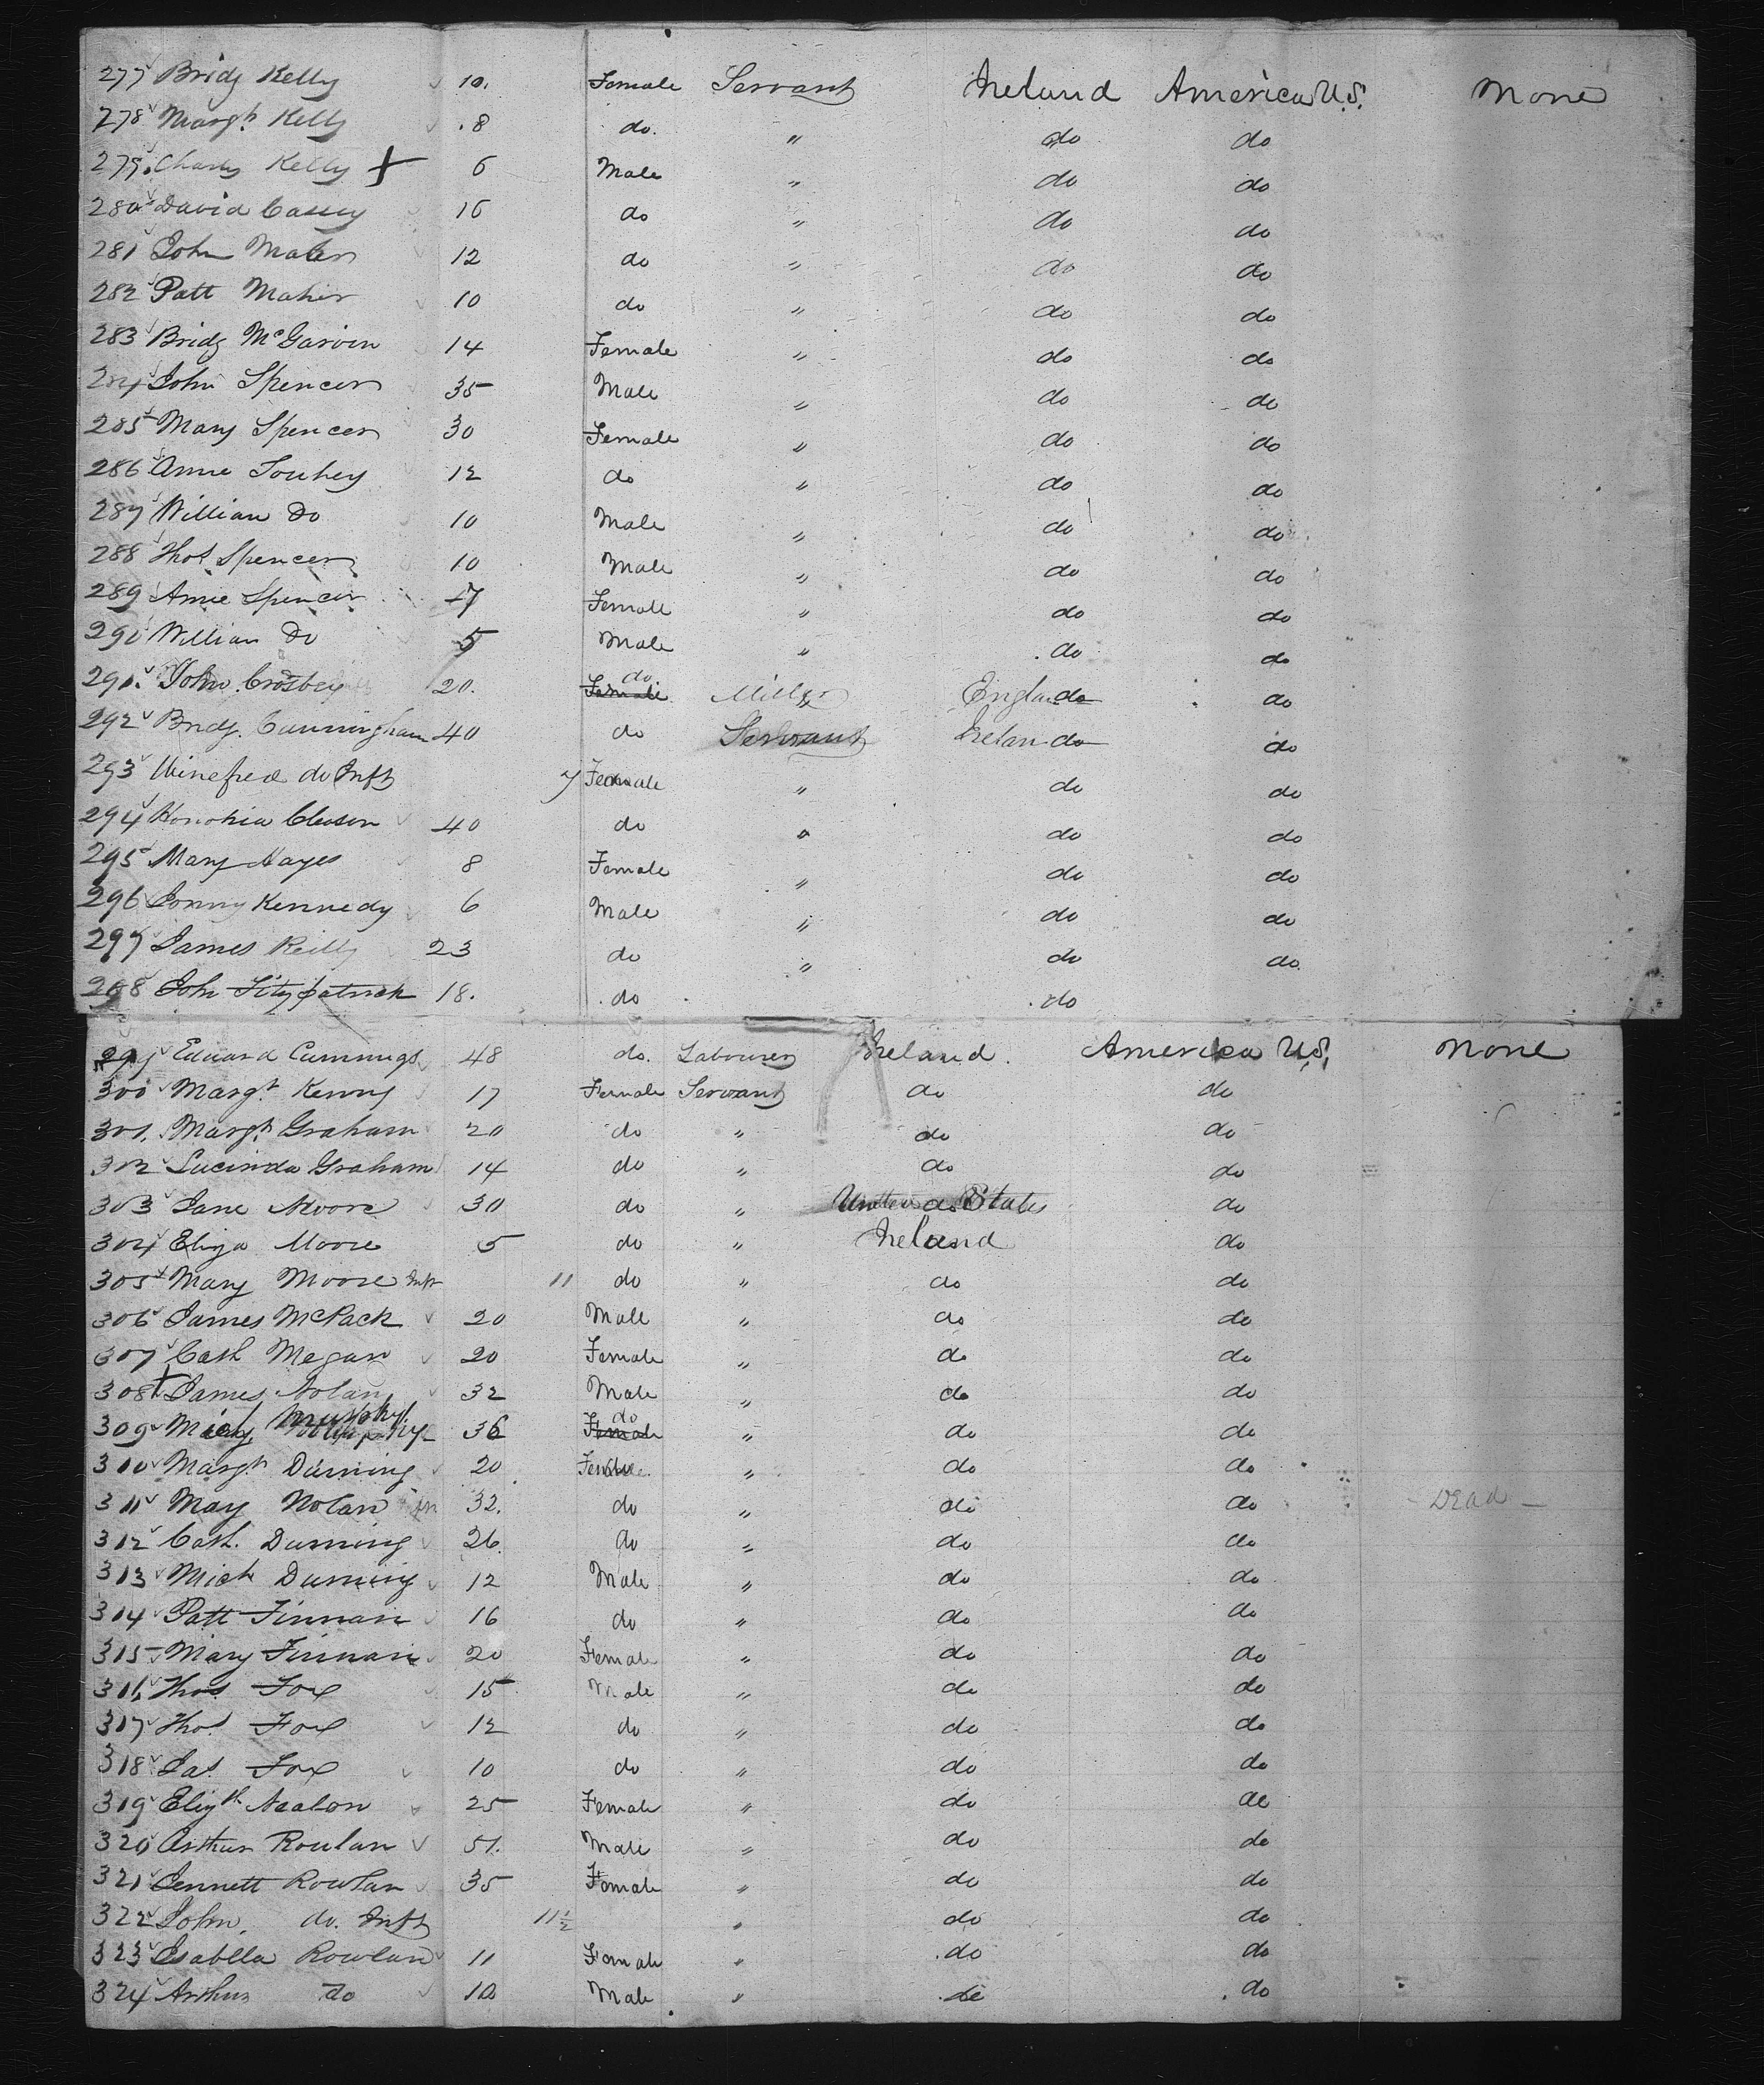 277 Bridg Kelly 10. Female Servant Ireland America U.S. None
278 Margt Kelly 8 do. " do do
279. Charles Kelly + 6 Male " do do
280 David Cassey 16 do " do do
281 John Maher 12 do " do do
282 Patt Maher 10 do " do do
283 Bridg McGarvin 14 Female " do do
284 John Spencer 35 Male " do do
285 Mary Spencer 30 Female " do do
286 Anne Touhey 12 do " do do
287 William Do 10 Male " do do
288 Thos Spencer 10 Male " do do
289 Anne Spencer 7 Female " do do
290 William Do 5 Male " do do
291. John Crosbey 20. do Female Miller England do
292 Bridg. Cunningham 40 do Servant Ireland do
293 Winefred do Inft 7 Female " do do
294 Honohia Gleason 40 do " do do
295 Mary Hayes 8 Female " do do
296 Kennedy 6 Male " do do
297 James Reilly 23 do " do do.
298 John Fitzpatrick 18. do do
299 Edward Cummings 48 do. Labourer Ireland. America U.S. None
300 Margt Kenny 17 Female Servant do do
301. Margt Graham 20 do " do do
302 Lucinda Graham 14 do " do do
303 Jane Moore 30 do " United States do
304 Eliza Moore 5 do " Ireland do
305 Mary Moore Inft 11 do " do do
306 James McPack 20 Male " do do
307 Cath Megan 20 Female " do do
308 + James Nolan 32 Male " do do
309 Mich Murphy 36 do Female " do do
310 Margt Durning 20 Female " do do
311 Mary Nolan 32. do " do do Dead
312 Cath. Durning 26 do " do do
313 Mich Durning 12 Male " do do
314 Patt Finnan 16 do " do do
315 Mary Finnan 20 Female " do do
316 Thos Fox 15 Male " do do
317 Thos Fox 12 do " do do
318 Jas Fox 10 do " do do
319 Elizth Nealon 25 Female " do do
320 Arthur Rowlan 51. Male " do do
321 Jennett Rowlan 35 Female " do do
322 John, do. Inft 11½ " do do
323 Isablla Rowlan 11 Female " do do
324 Arthur Do 10 Male " do do